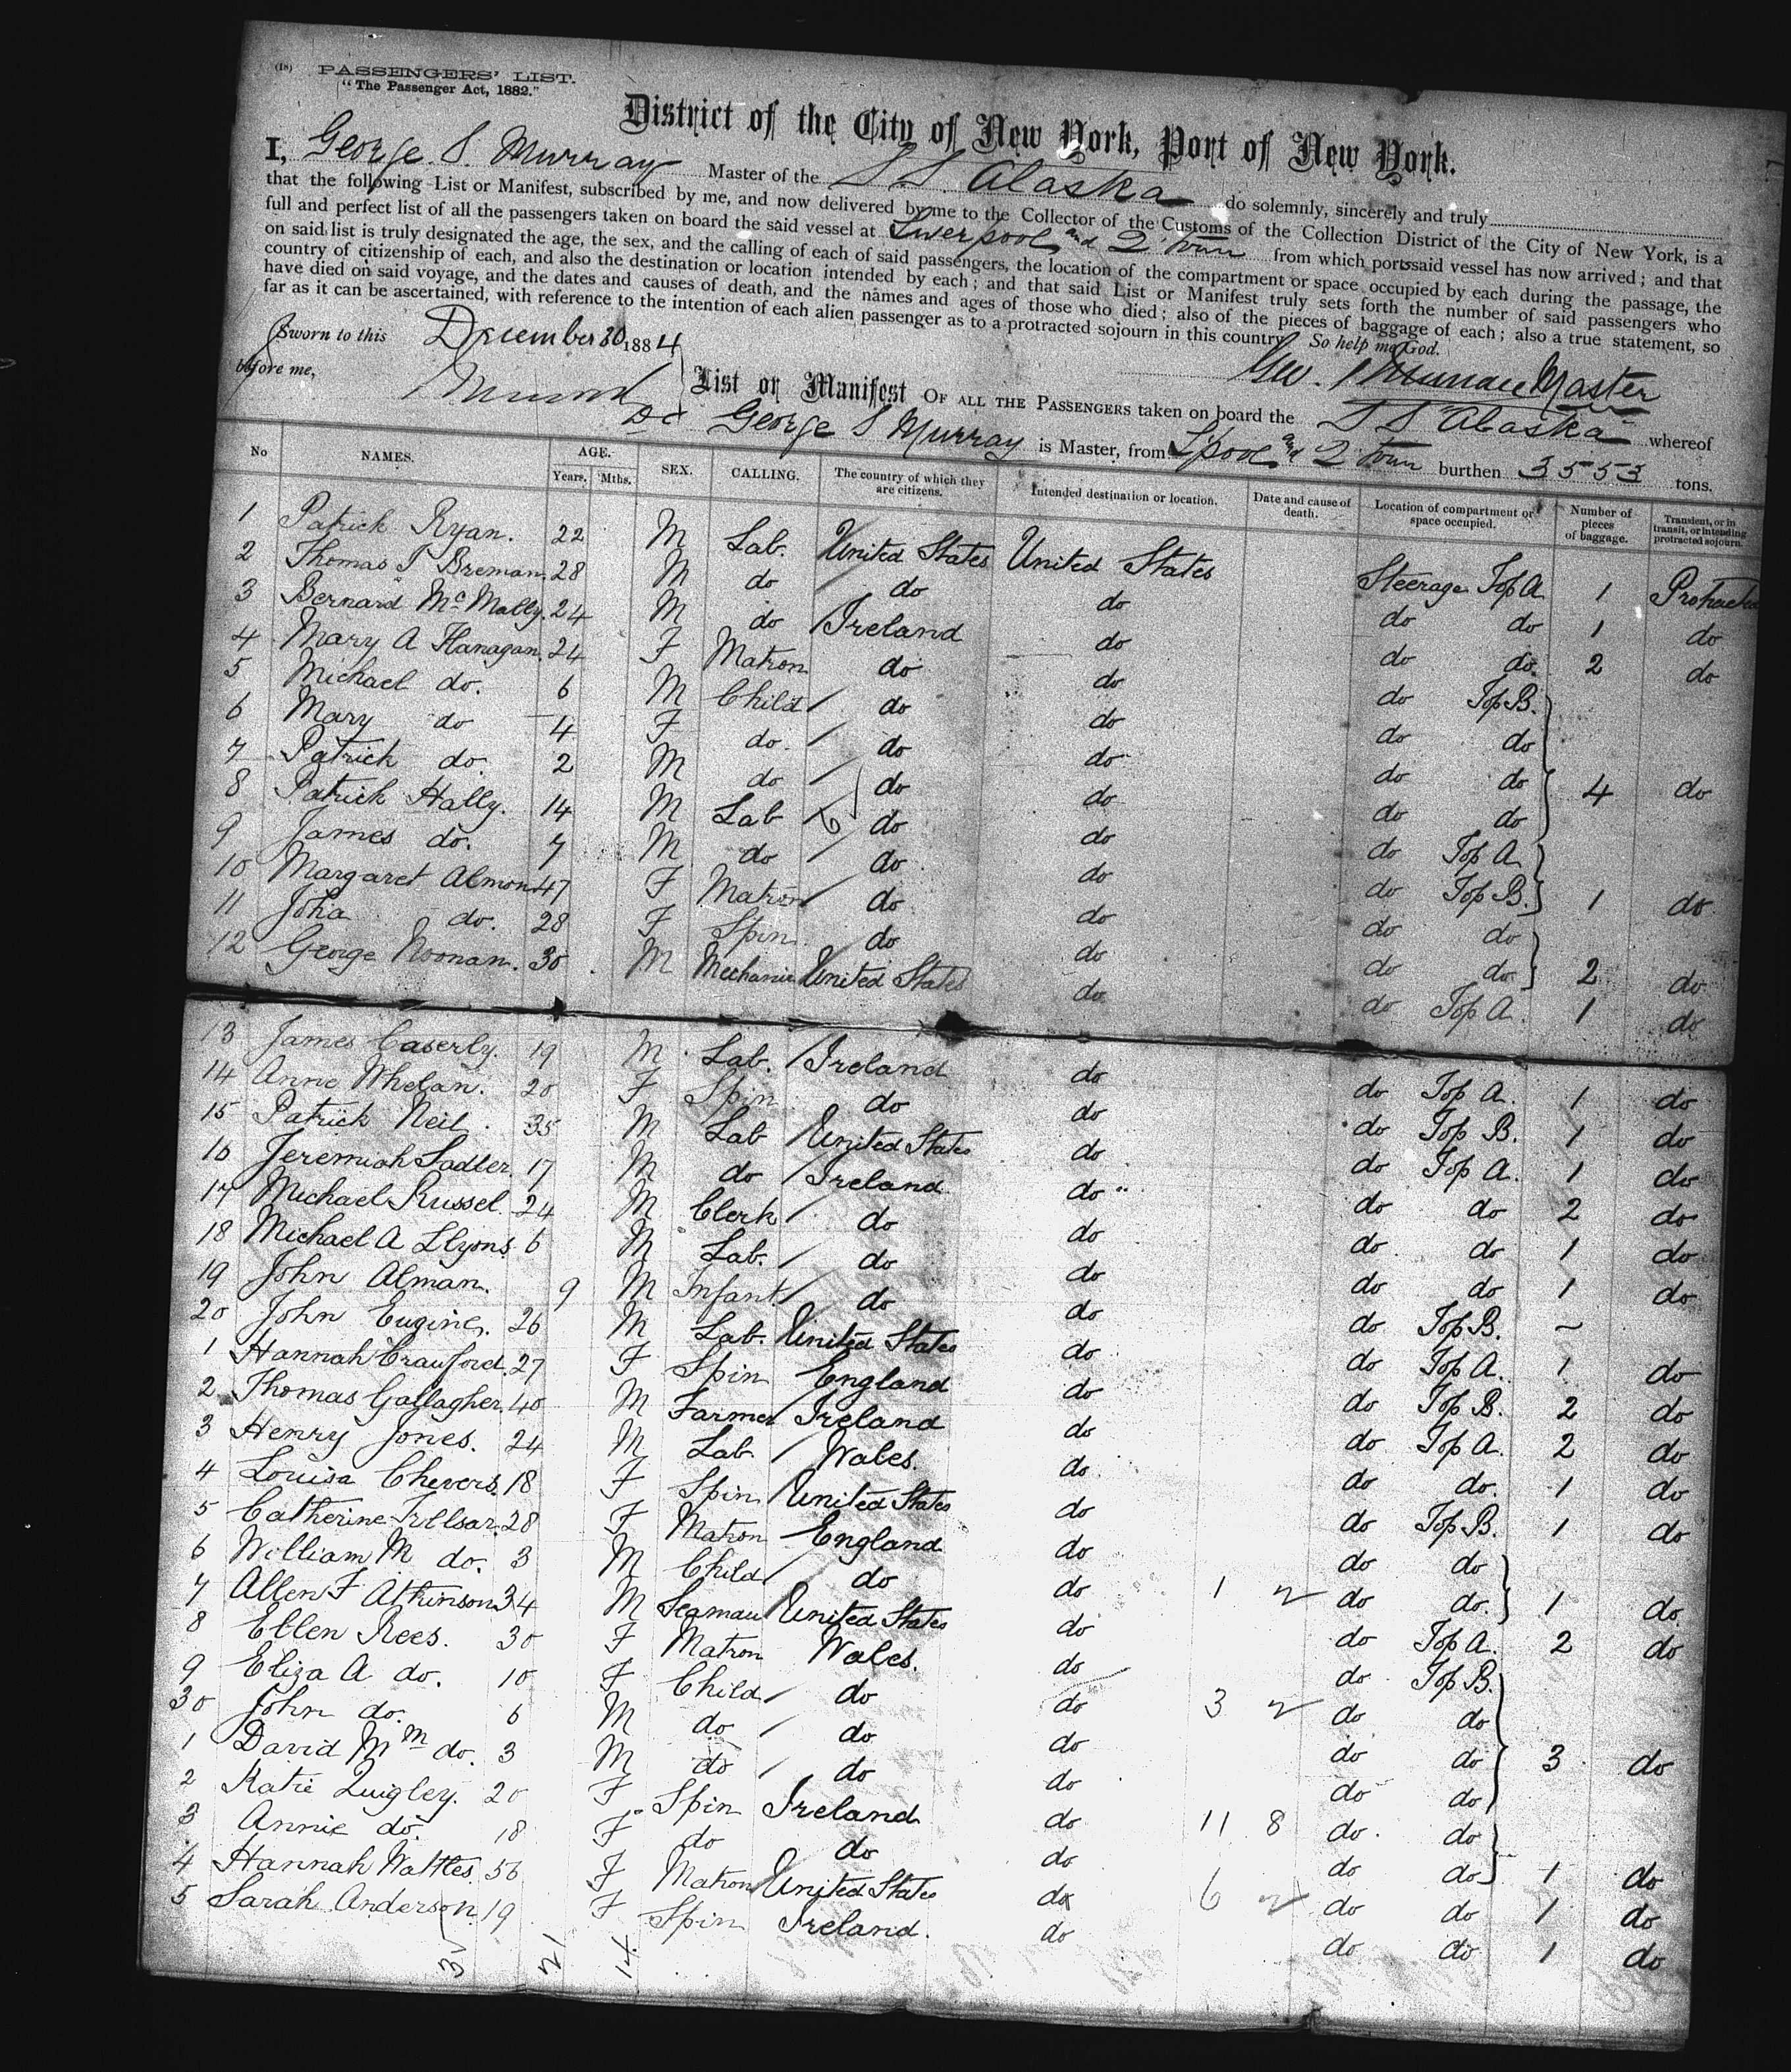 (18) PASSENGERS' LIST.
"The Passenger Act, 1882."
District of the City of New York, Port of New York.
I, George S. Murray Master of the S.S. Alaska do solemnly, sincerely and truly
that the following List or Manifest, subscribed by me, and now delivered by me to the Collector of the Customs of the Collection District of the City of New York, is a
full and perfect list of all the passengers taken on board the said vessel at Liverpool and Q. Town from which ports said vessel has now arrived; and that
on said list is truly designated the age, the sex, and the calling of each of said passengers, the location of the compartment or space occupied by each during the passage, the
country of citizenship of each, and also the destination or location intended by each; and that said List or Manifest truly sets forth the number of said passengers who
have died on said voyage, and the dates and causes of death, and the names and ages of those who died; also of the pieces of baggage of each; also a true statement, so
far as it can be ascertained, with reference to the intention of each alien passenger as to a protracted sojourn in this country. So help me God.
Sworn to this December 30 1884
before me,
Geo. S. Murray Master
List or Manifest OF ALL THE PASSENGERS taken on board the S S Alaska whereof
George S Murray is Master, from L'pool and Q Town burthen 3553 tons.
No NAMES. AGE. Years. Mths. SEX. CALLING. The country of which they are citizens. Intended destination or location. Date and cause of death. Location of compartment or space occupied. Number of pieces of baggage. Transient, or in transit, or intending protracted sojourn.
1 Patrick Ryan. 22 M Lab. United States United States Steerage Top A 1 Protracted
2 Thomas J Breman. 28 M do do do do do 1 do
3 Bernard McMally. 24 M do Ireland do do do. 2 do
4 Mary A Flanagan. 24 F Matron do do do Top B.
5 Michael do. 6 M Child do do do do
6 Mary do 4 F do. do do do do 4 do
7 Patrick do. 2 M do do do do do
8 Patrick Hally. 14 M Lab do do do Top A
9 James do. 7 M do do do do Top B. 1 do
10 Margaret Almon 47 F Matron do do do do
11 Joha do. 28 F Spin. do do do do 2 do
12 George Noonan. 30 M Mechanic United States do do Top A. 1 do
13 James Caserly. 19 M Lab. Ireland do do Top A. 1 do
14 Anne Whelan. 20 F Spin do do do Top B. 1 do
15 Patrick Neil. 35 M Lab United States do do Top A. 1 do
16 Jeremiah Sadler. 17 M do Ireland do do do 2 do
17 Michael Russel. 24 M Clerk do do do do 1 do
18 Michael A Llyons. 6 M Lab. do do do do 1 do
19 John Alman. 9 M Infant. do do do Top B. ~
20 John Eugine. 26 M Lab. United States do do Top A. 1 do
1 Hannah Crauford. 27 F Spin England do do Top B. 2 do
2 Thomas Gallagher. 40 M Farmer Ireland do do Top A. 2 do
3 Henry Jones. 24 M Lab. Wales. do do do. 1 do
4 Louisa Chevers. 18 F Spin United States do do Top B. 1 do
5 Catherine 28 F Matron England do do do
6 William M do. 3 M Child do do 1 2 do do. 1 do
7 Allen F Atkinson 34 M Seaman United States do do Top A. 2 do
8 Ellen Rees. 30 F Matron Wales. do do Top B.
9 Eliza A do. 10 F Child do do 3 2 do do
30 John do. 6 M do do do do do 3 do
1 David Mm do. 3 M do do do do do
2 Katie Quigley. 20 F Spin Ireland do 11 8 do. do
3 Annie do. 18 F do do do do do 1 do
4 Hannah Wattles 56 F Matron United States do 6 2 do do 1 do
5 Sarah Anderson. 19 F Spin Ireland. do do do 1 do
21 14